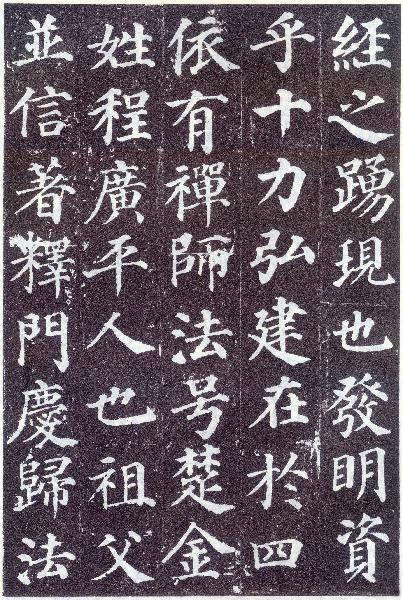 經之踴現也發明資
乎十力弘建在於四
依有禪師法号楚金
姓程廣平人也祖父
並信著釋門慶歸法